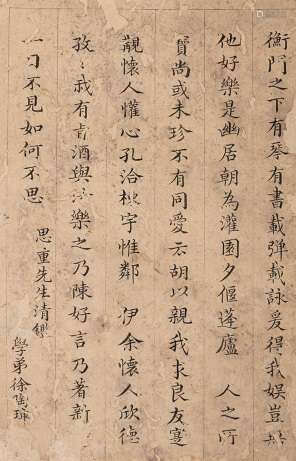 衡門之下有琴有書載弹載詠爰得我娱豈無
他好樂是幽居朝為灌園夕偃蓬廬 人之所
寳尚或未珍不有同愛云胡以親我求良友寔
觀懷人懽心孔洽棟宇惟鄰 伊余懷人欣德
孜〻我有旨酒與汝樂之乃陳好言乃著新
一日不見如何不思
思重先生清鑒
學弟徐陶璋